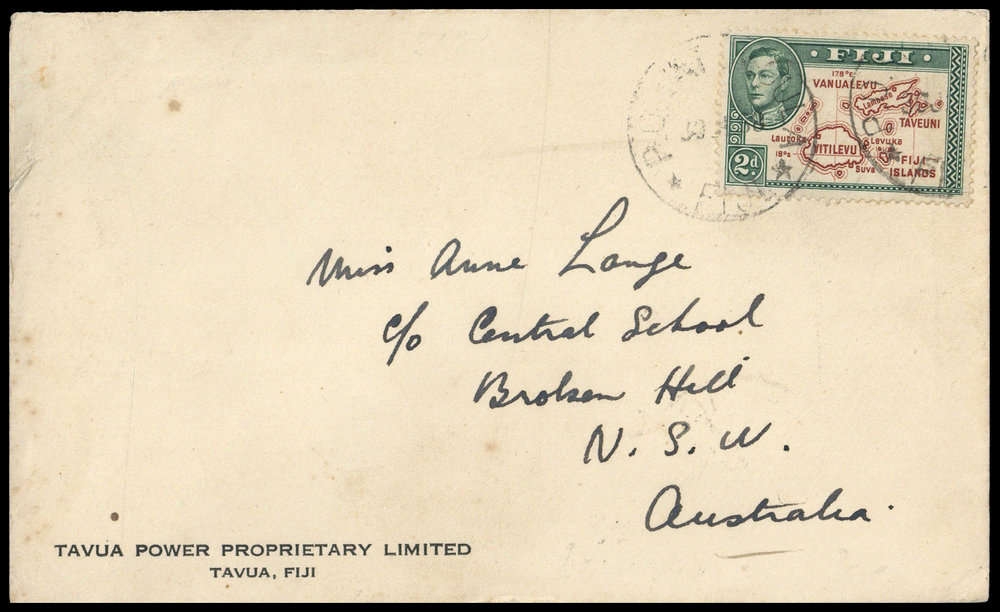 · FIJI ·
178°E
VANUALEVU
Lambasa
TAVEUNI
Lautoka
VITILEVU
Levuka
18°S
Suva
FIJI
ISLANDS
2d
FIJI
Miss Anne Lange
c/o Central School
Broken Hill
N. S. W.
Australia.
TAVUA POWER PROPRIETARY LIMITED
TAVUA, FIJI